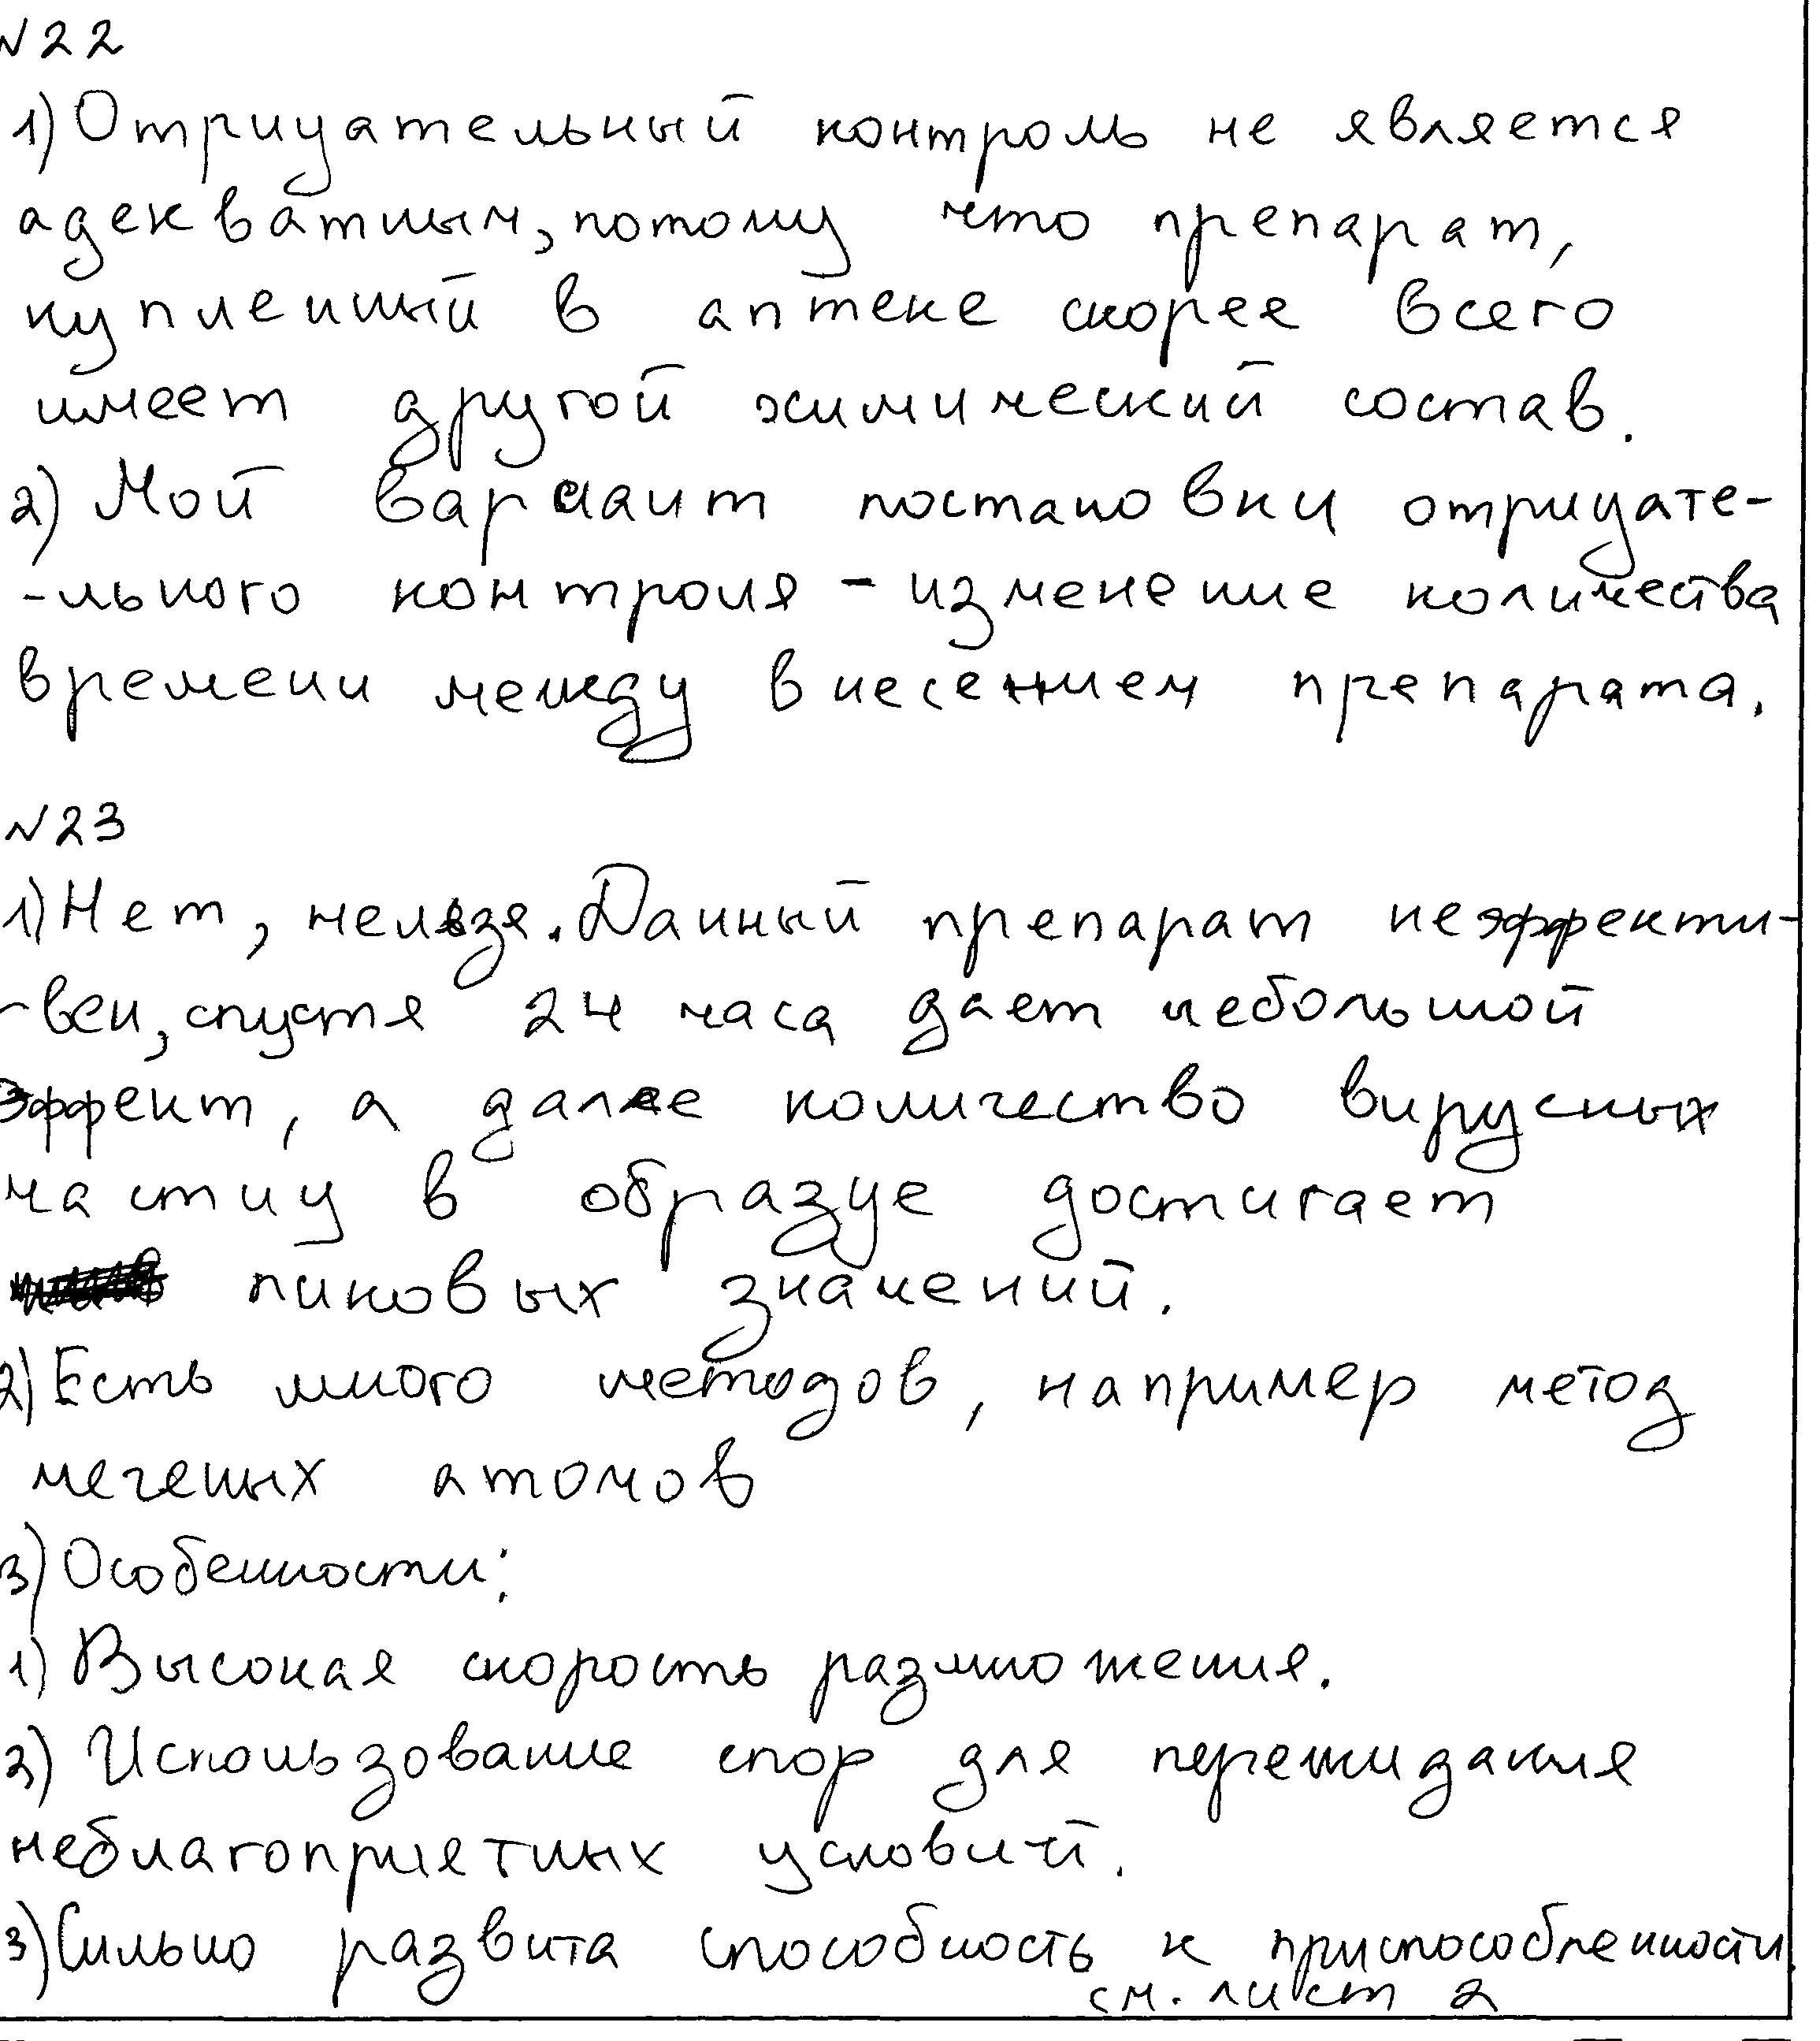 №22
1) Отрицательный контроль не является
адекватным, потому что препарат,
купленный в аптеке скорее всего
имеет другой химический состав.
2) Мой вариант постановки отрицате-
-льного контроля - изменение количества
времени между внесением препарата.
№23
1) Нет, нельзя. Данный препарат неэффекти-
-вен, спустя 24 часа дает небольшой
эффект, а далее количество вирусных
частиц в образце достигает
пиковых значений.
2) Есть много методов, например метод
меченых атомов
3) Особенности:
1) Высокая скорость размножения.
2) Использование спор для пережидания
неблагоприятных условий.
3) Сильно развита способность к приспособленности
см. лист 2